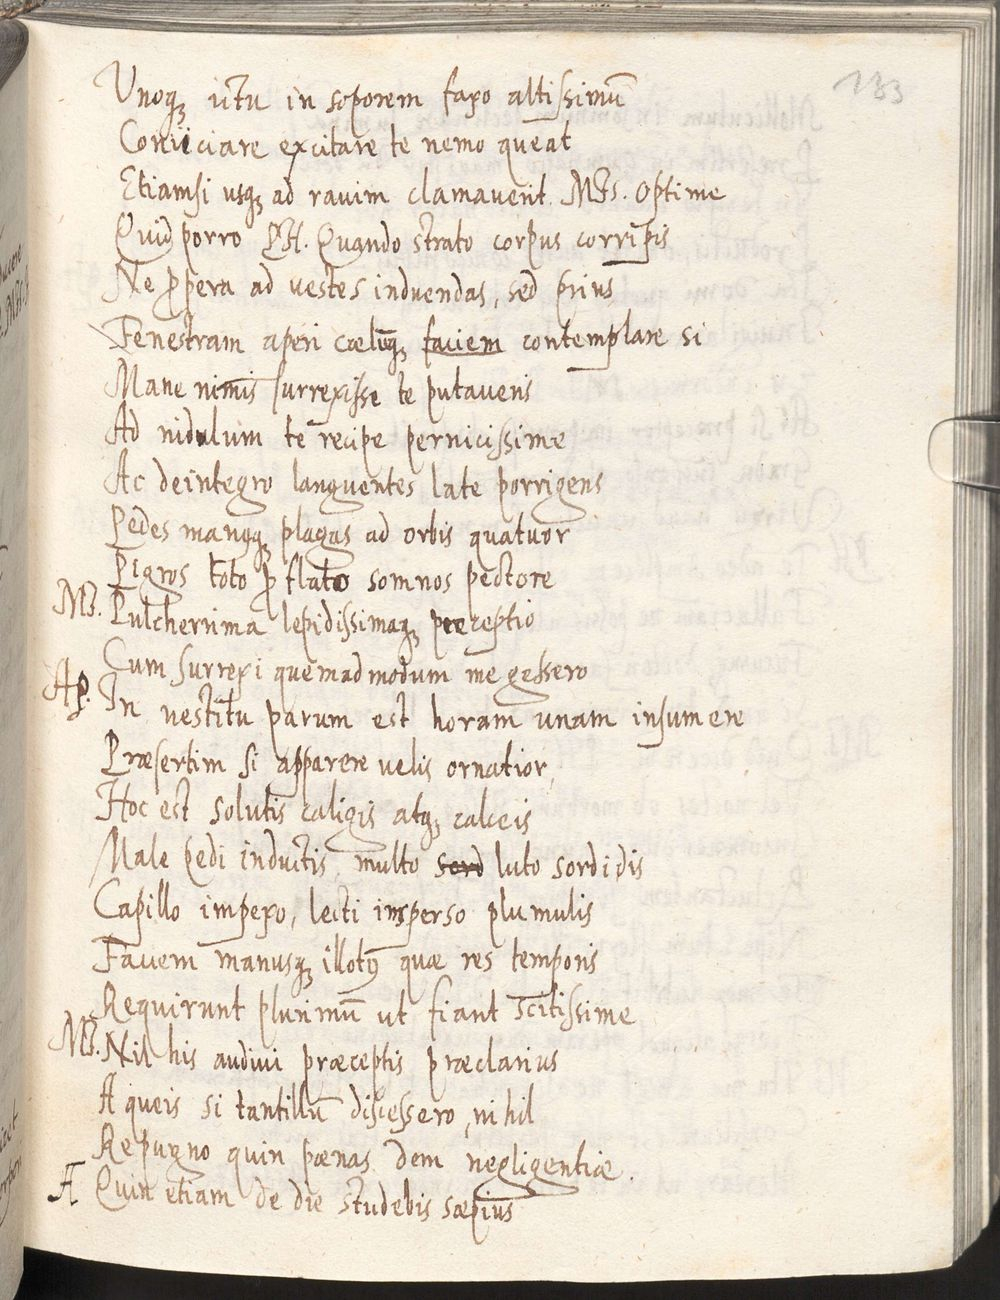 133
Unoq; ictu in soporem faxo altissimū
Coniiciare excitare te nemo queat
Etiamsi usq; ad ravim clamaverit. Ms. Optime
Quid porro PH. Quando strato corpus corripis
Ne ꝓpera ad vestes induendas, sed prius
Fenestram aperi cœlūq; faciem contemplare si
Mane nimis surrexisse te putaveris
Ad nidulum te recipe pernicissime
Ac deintegro languentes late porrigens
Pedes manusq; plagas ad orbis quatuor
Pigros toto ꝓflato somnos pectore
Ms. Pulcherrima lepidissimaq; præceptio
Cum surrexi quemadmodum me gessero
Ap. In vestitu parum est horam unam insumere
Præsertim si apparere velis ornatior,
Hoc est solutis caligis atq; calceis
Male pedi inductis, multo sord luto sordidis
Capillo impexo, lecti insperso plumulis
Faciem manusq; illotꝰ quæ res temporis
Requirunt plurimū ut fiant scitissime
Ms. Nil his audivi præceptis præclarius
A queis si tantillū discessero, nihil
Repugno quin pœnas dem negligentiæ
A Quin etiam de die studebis sæpius